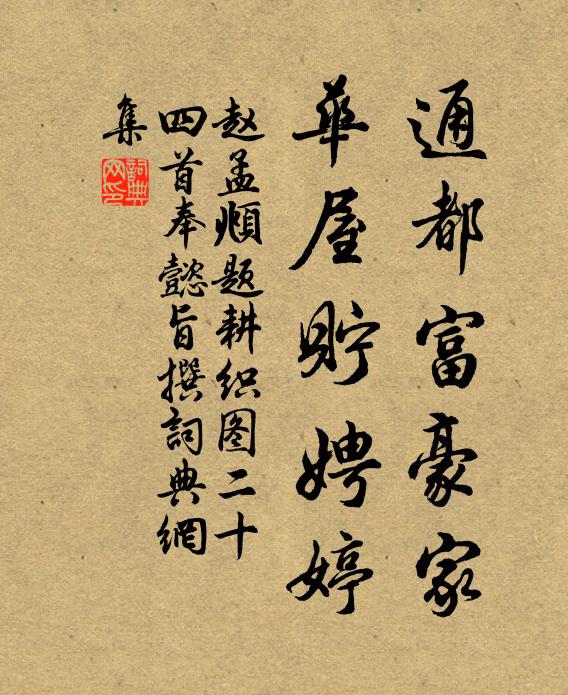 通都富豪家
華屋貯娉婷
赵孟頫题耕织图二十
四首奉懿旨撰詞典網
集
詞典
网印